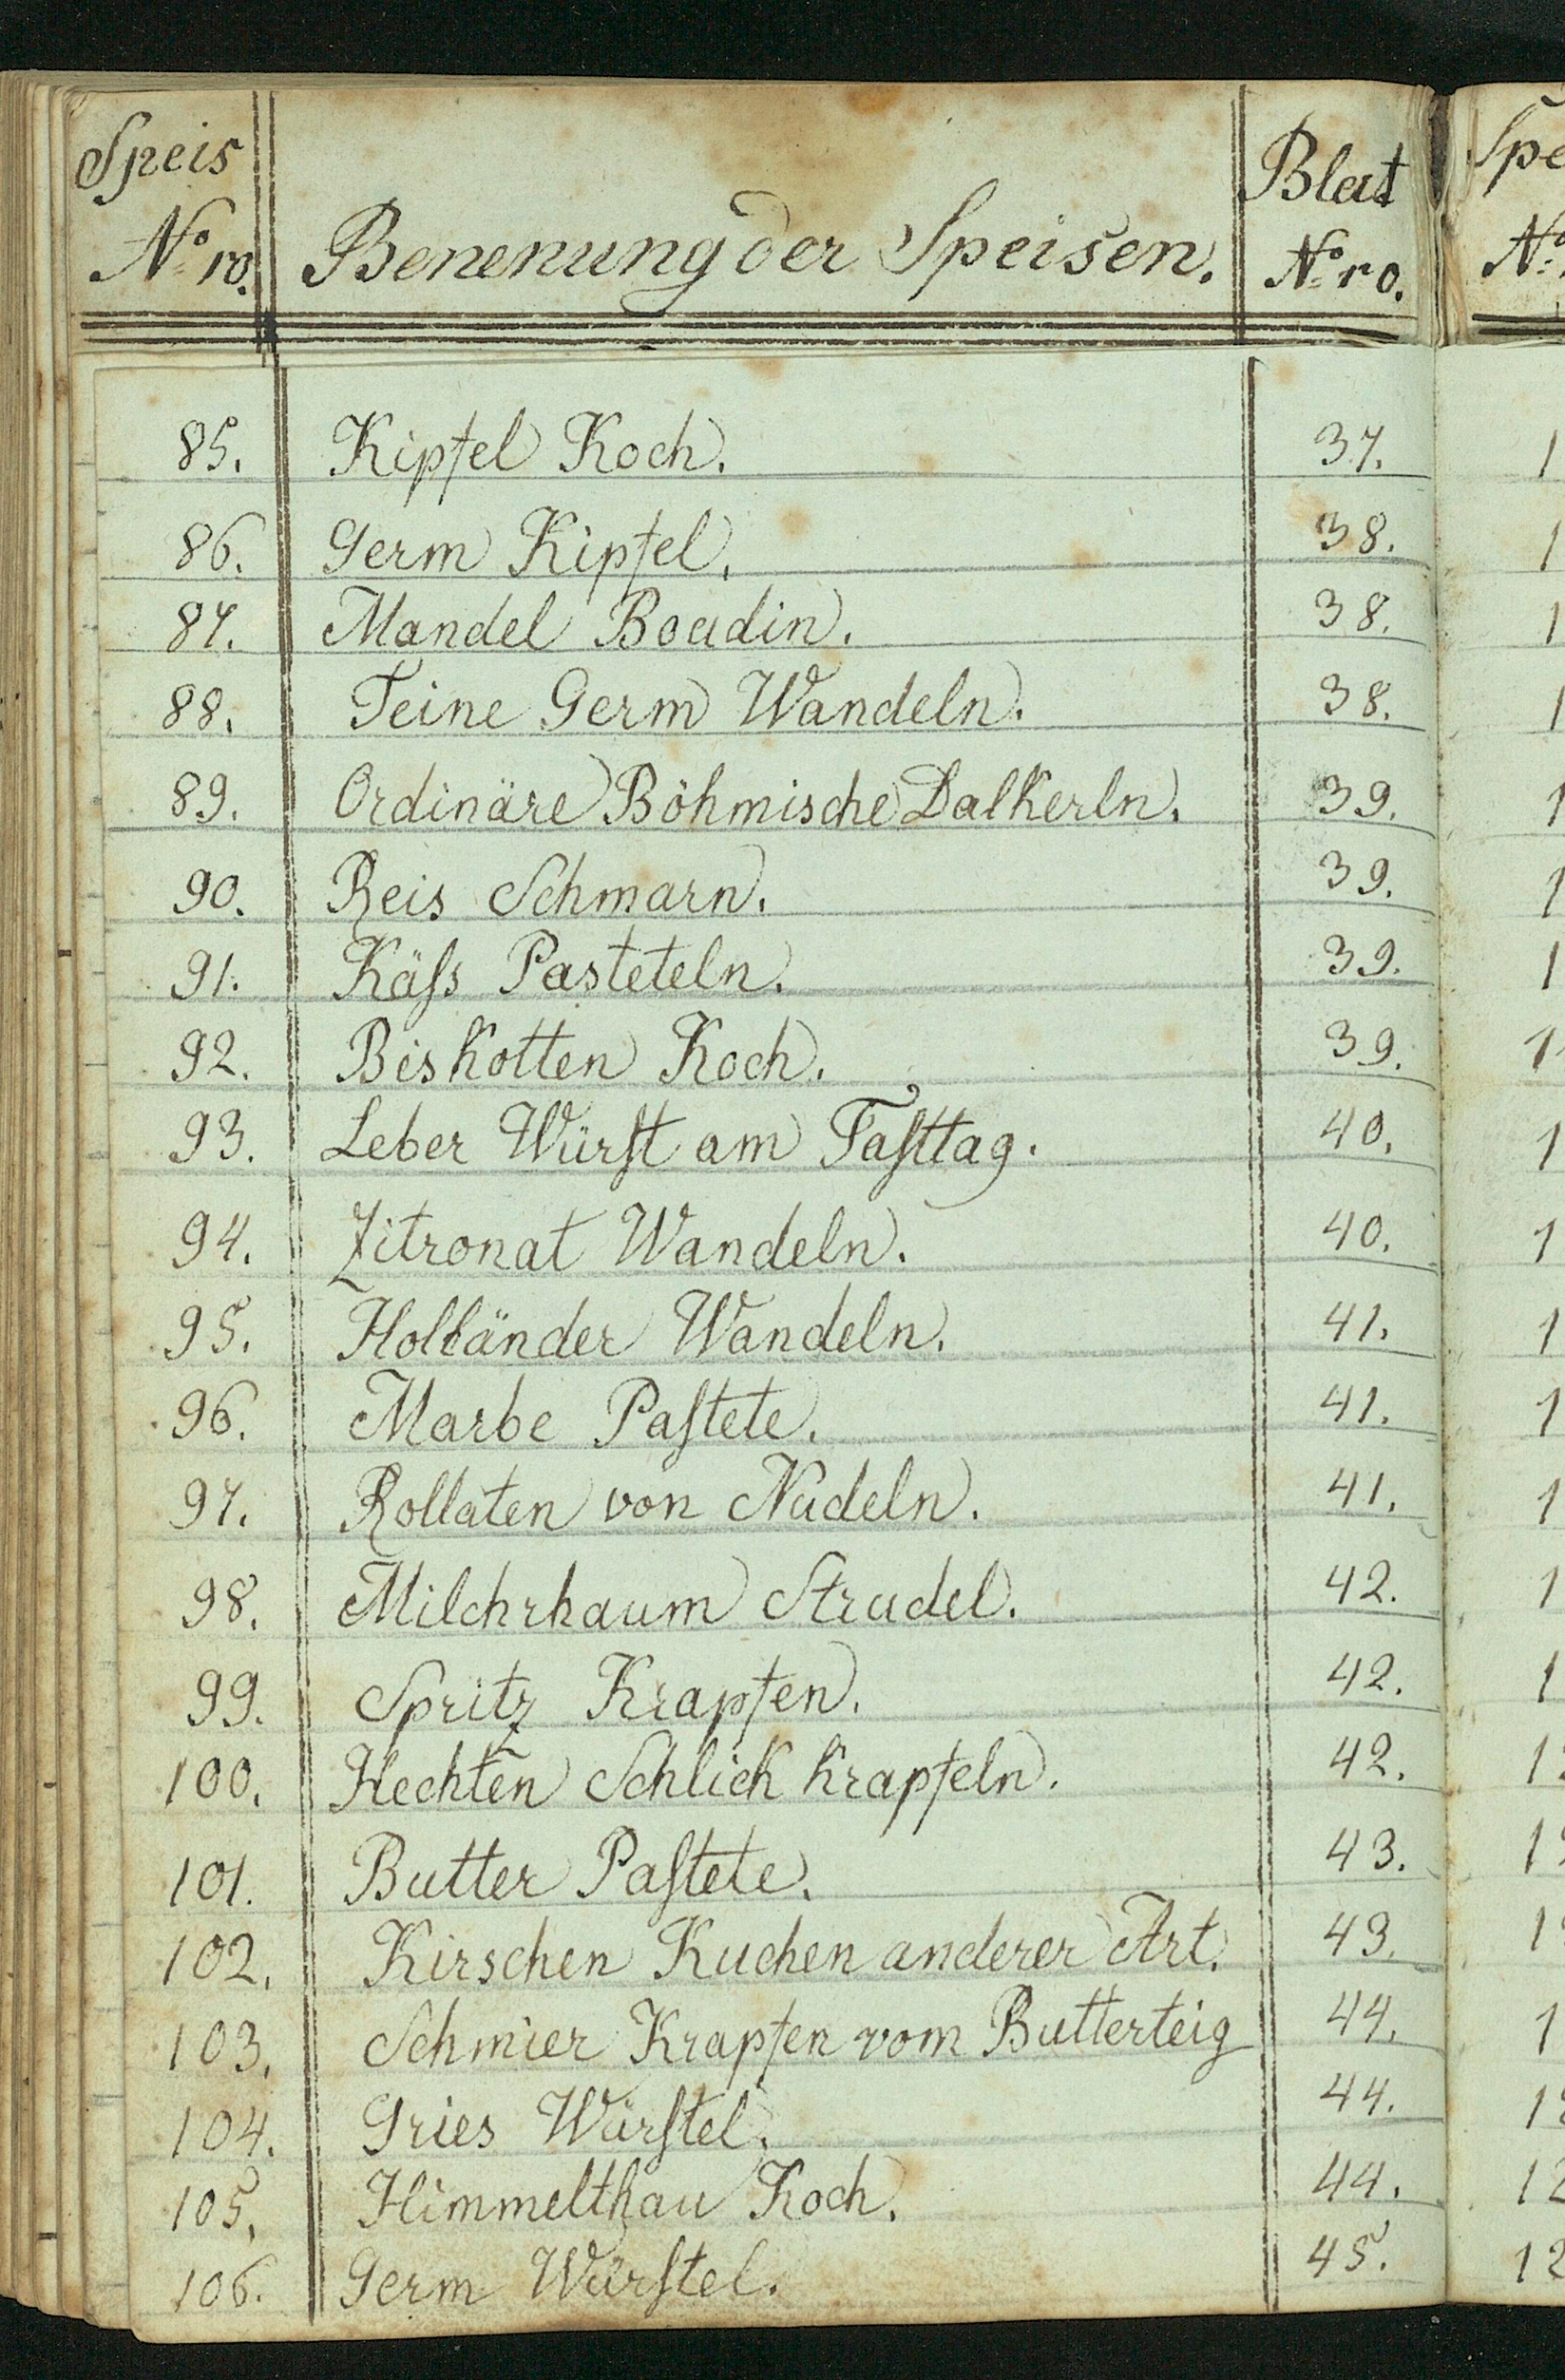 Speis Nº ro. Benenung der Speisen. Blat Nº ro.
85. Kipfel Koch. 37.
86. Germ Kipfel. 38.
87. Mandel Boudin. 38.
88. Feine Germ Wandeln. 38.
89. Ordinäre Böhmische Dalkerln. 39.
90. Reis Schmarn. 39.
91. Käſs Pasteteln. 39.
92. Biskotten Koch. 39.
93. Leber Würſt am Faſttag. 40.
94. Zitronat Wandeln. 40.
95. Holländer Wandeln. 41.
96. Marbe Paſtete. 41.
97. Rollaten von Nudeln. 41.
98. Milchrhaum Strudel. 42.
99. Spritz Krapfen. 42.
100. Hechten Schlick krapfeln. 42.
101. Butter Paſtete. 43.
102. Kirschen Kuchen anderer Art. 43.
103. Schmier Krapfen vom Butterteig 44.
104. Gries Würſtel. 44.
105. Himmelthau Koch. 44.
106. Germ Würſtel. 45.